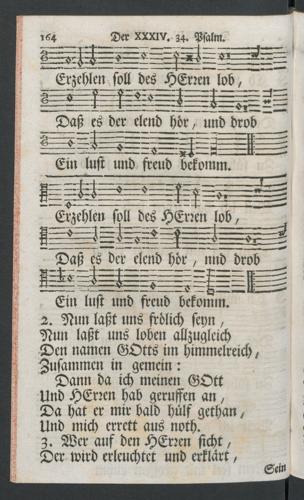 164 Der XXXIV. 34. Psalm.
Erzehlen soll des HErren lob,
Daß es der elend hör, und drob
Ein lust und freud bekomm.
Erzehlen soll des HErren lob,
Daß es der elend hör, nnd drob
Ein lust und freud bekomm.
2. Nun laßt uns frölich seyn,
Nun laßt uns loben allzugleich
Den namen GOtts im himmelreich,
Zusammen in gemein:
Dann da ich meinen GOtt
Und HErren hab geruffen an,
Da hat er mir bald hülf gethan,
Und mich errett aus noth.
3. Wer auf den HErren sicht,
Der wird erleuchtet und erklärt,
Sein